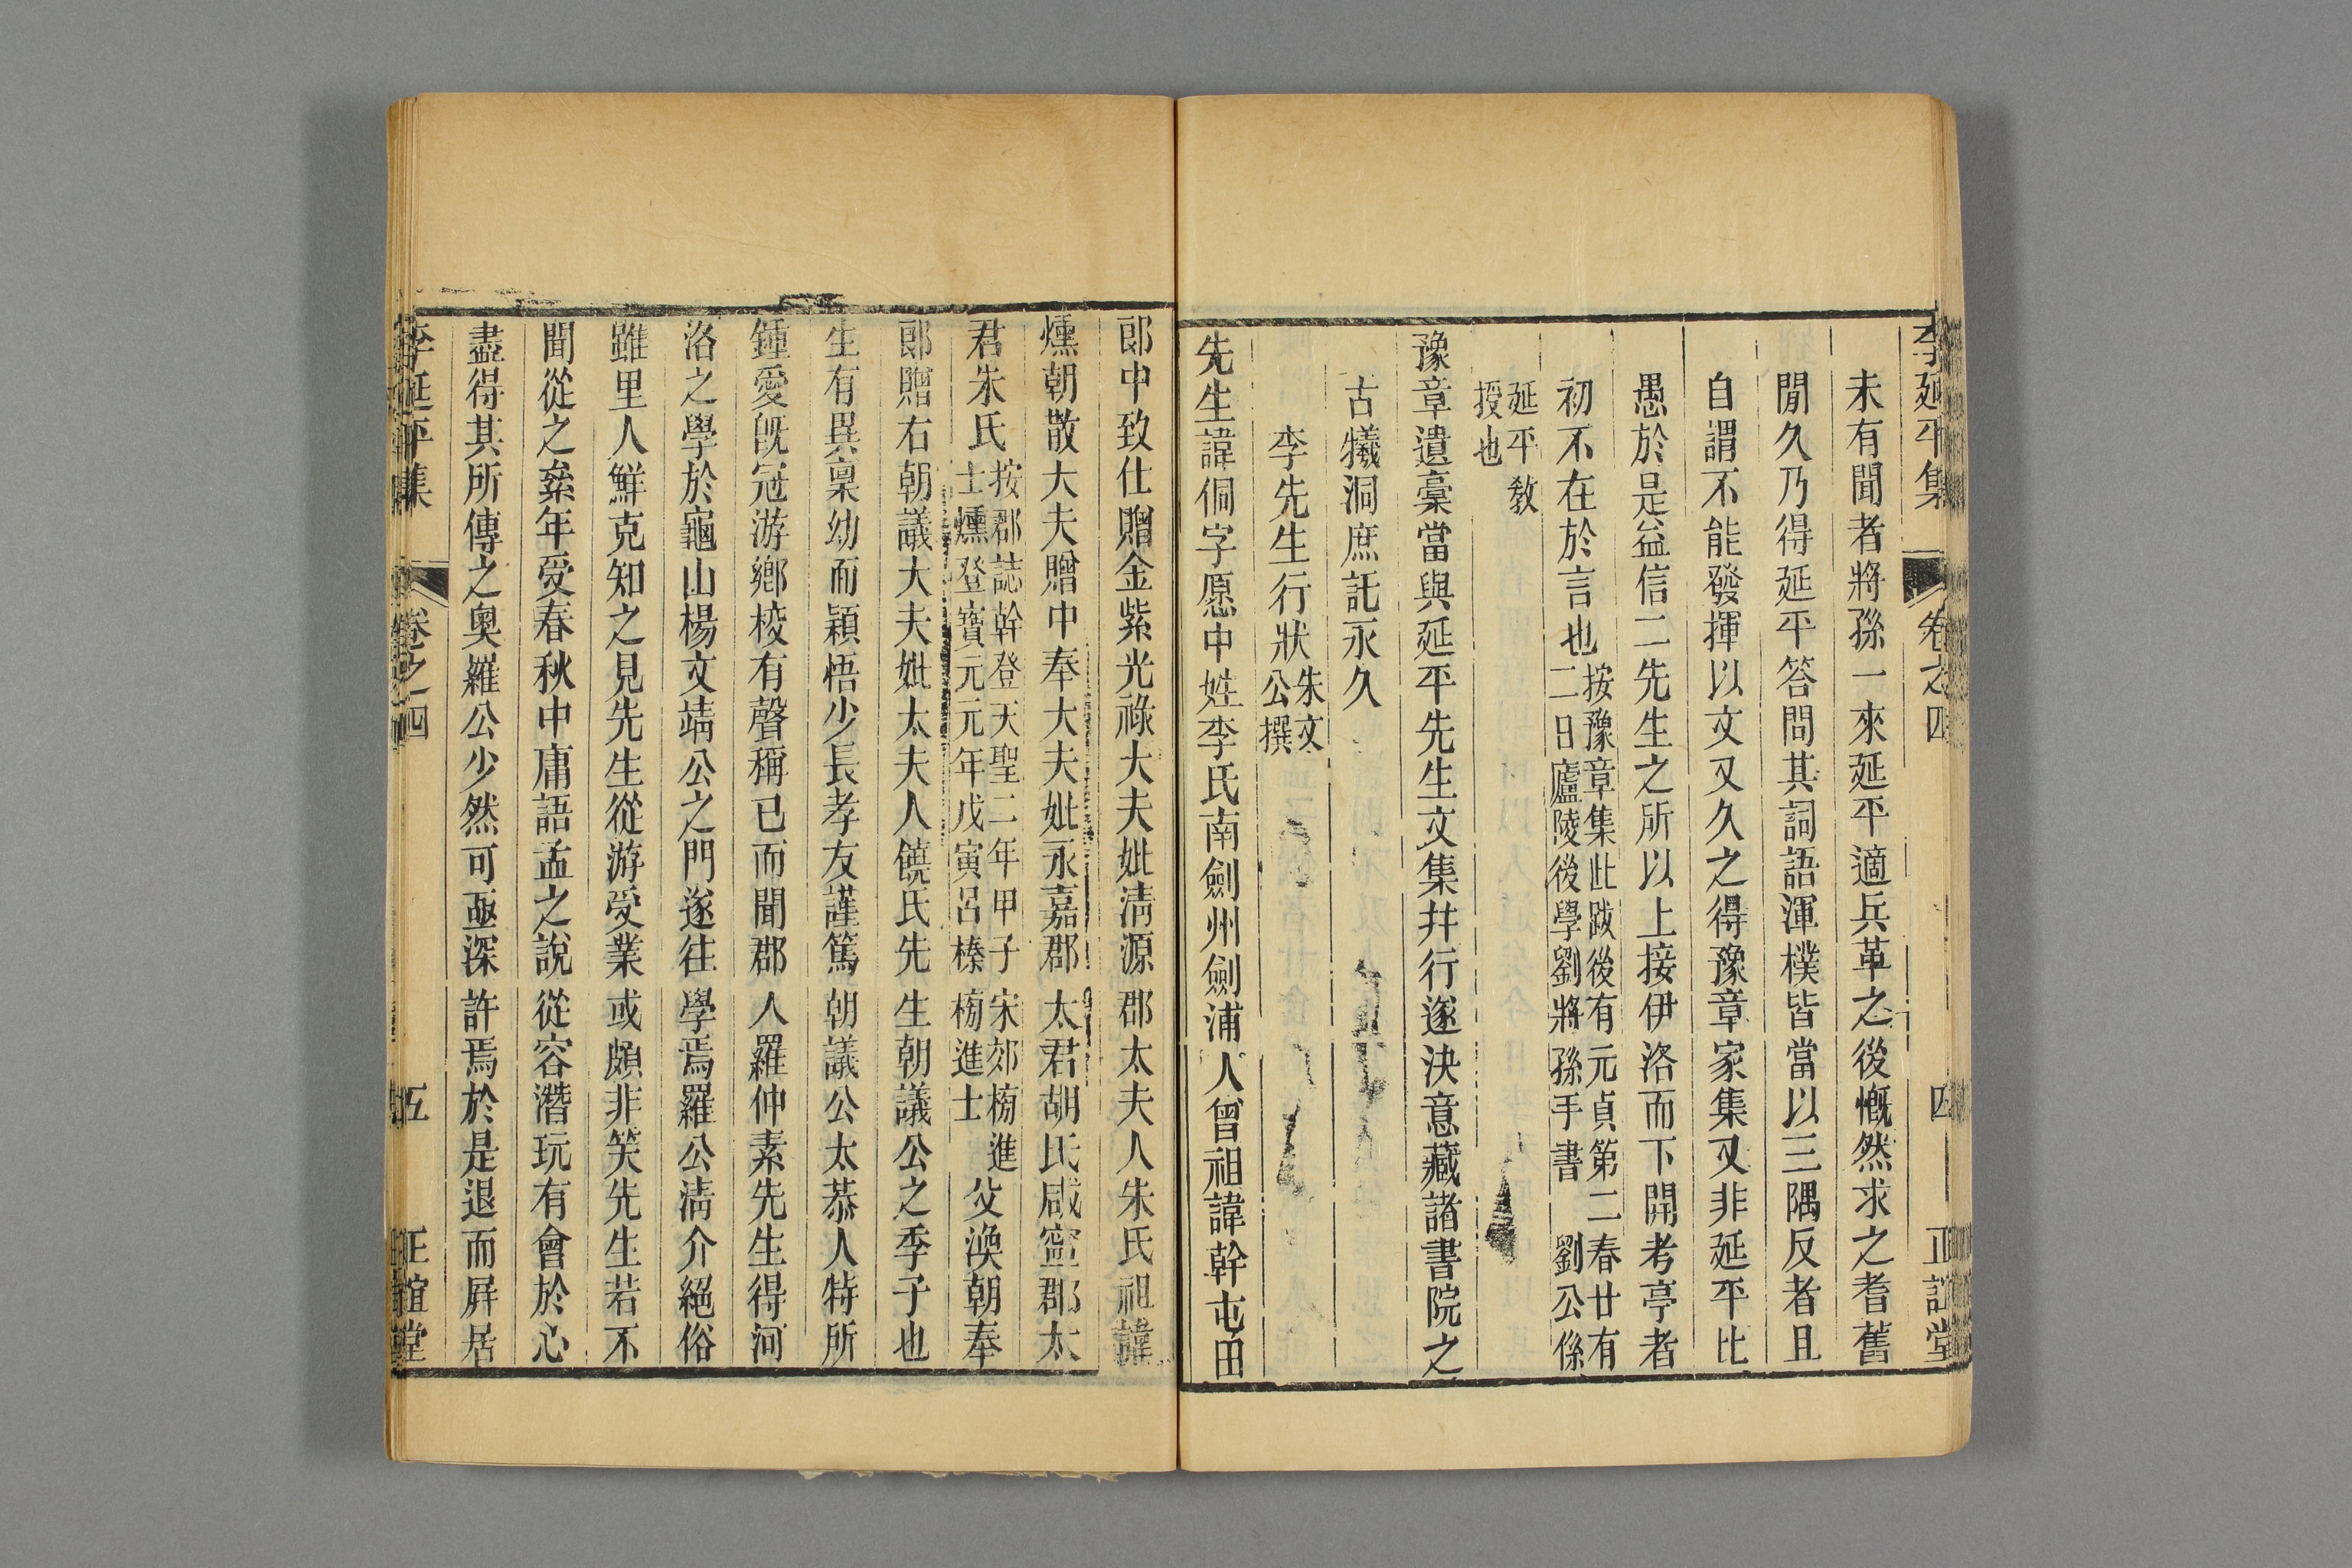 李延平集 卷之四 四 正誼堂
未有聞者將孫一來延平適兵革之後慨然求之耆舊
閒久乃得延平答問其詞語渾樸皆當以三隅反者且
自謂不能發揮以文又久之得豫章家集又非延平比
愚於是益信二先生之所以上接伊洛而下開考亭者
初不在於言也
按豫章集此跋後有元貞第二春廿有
二日廬陵後學劉將孫手書 劉公係
延平教
授也
豫章遺稾當與延平先生文集并行遂決意藏諸書院之
古犧洞庶託永久
李先生行狀
朱文
公撰
先生諱侗字愿中姓李氏南劍州劍浦人曾祖諱幹屯田
郎中致仕贈金紫光祿大夫妣淸源郡太夫人朱氏祖諱
燻朝散大夫贈中奉大夫妣永嘉郡太君胡氏咸寍郡太
君朱氏
按郡誌幹登天聖二年甲子宋郊榜進
士燻登寶元元年戊寅呂榛榜進士
父渙朝奉
郎贈右朝議大夫妣太夫人饒氏先生朝議公之季子也
生有異稟幼而穎悟少長孝友謹篤朝議公太恭人特所
鍾愛旣冠游鄉校有聲稱已而聞郡人羅仲素先生得河
洛之學於龜山楊文靖公之門遂往學焉羅公淸介絕俗
雖里人鮮克知之見先生從游受業或頗非笑先生若不
聞從之絫年受春秋中庸語孟之說從容潛玩有會於心
盡得其所傳之奧羅公少然可亟深許焉於是退而屛居
李延平集 卷之四 五 正誼堂